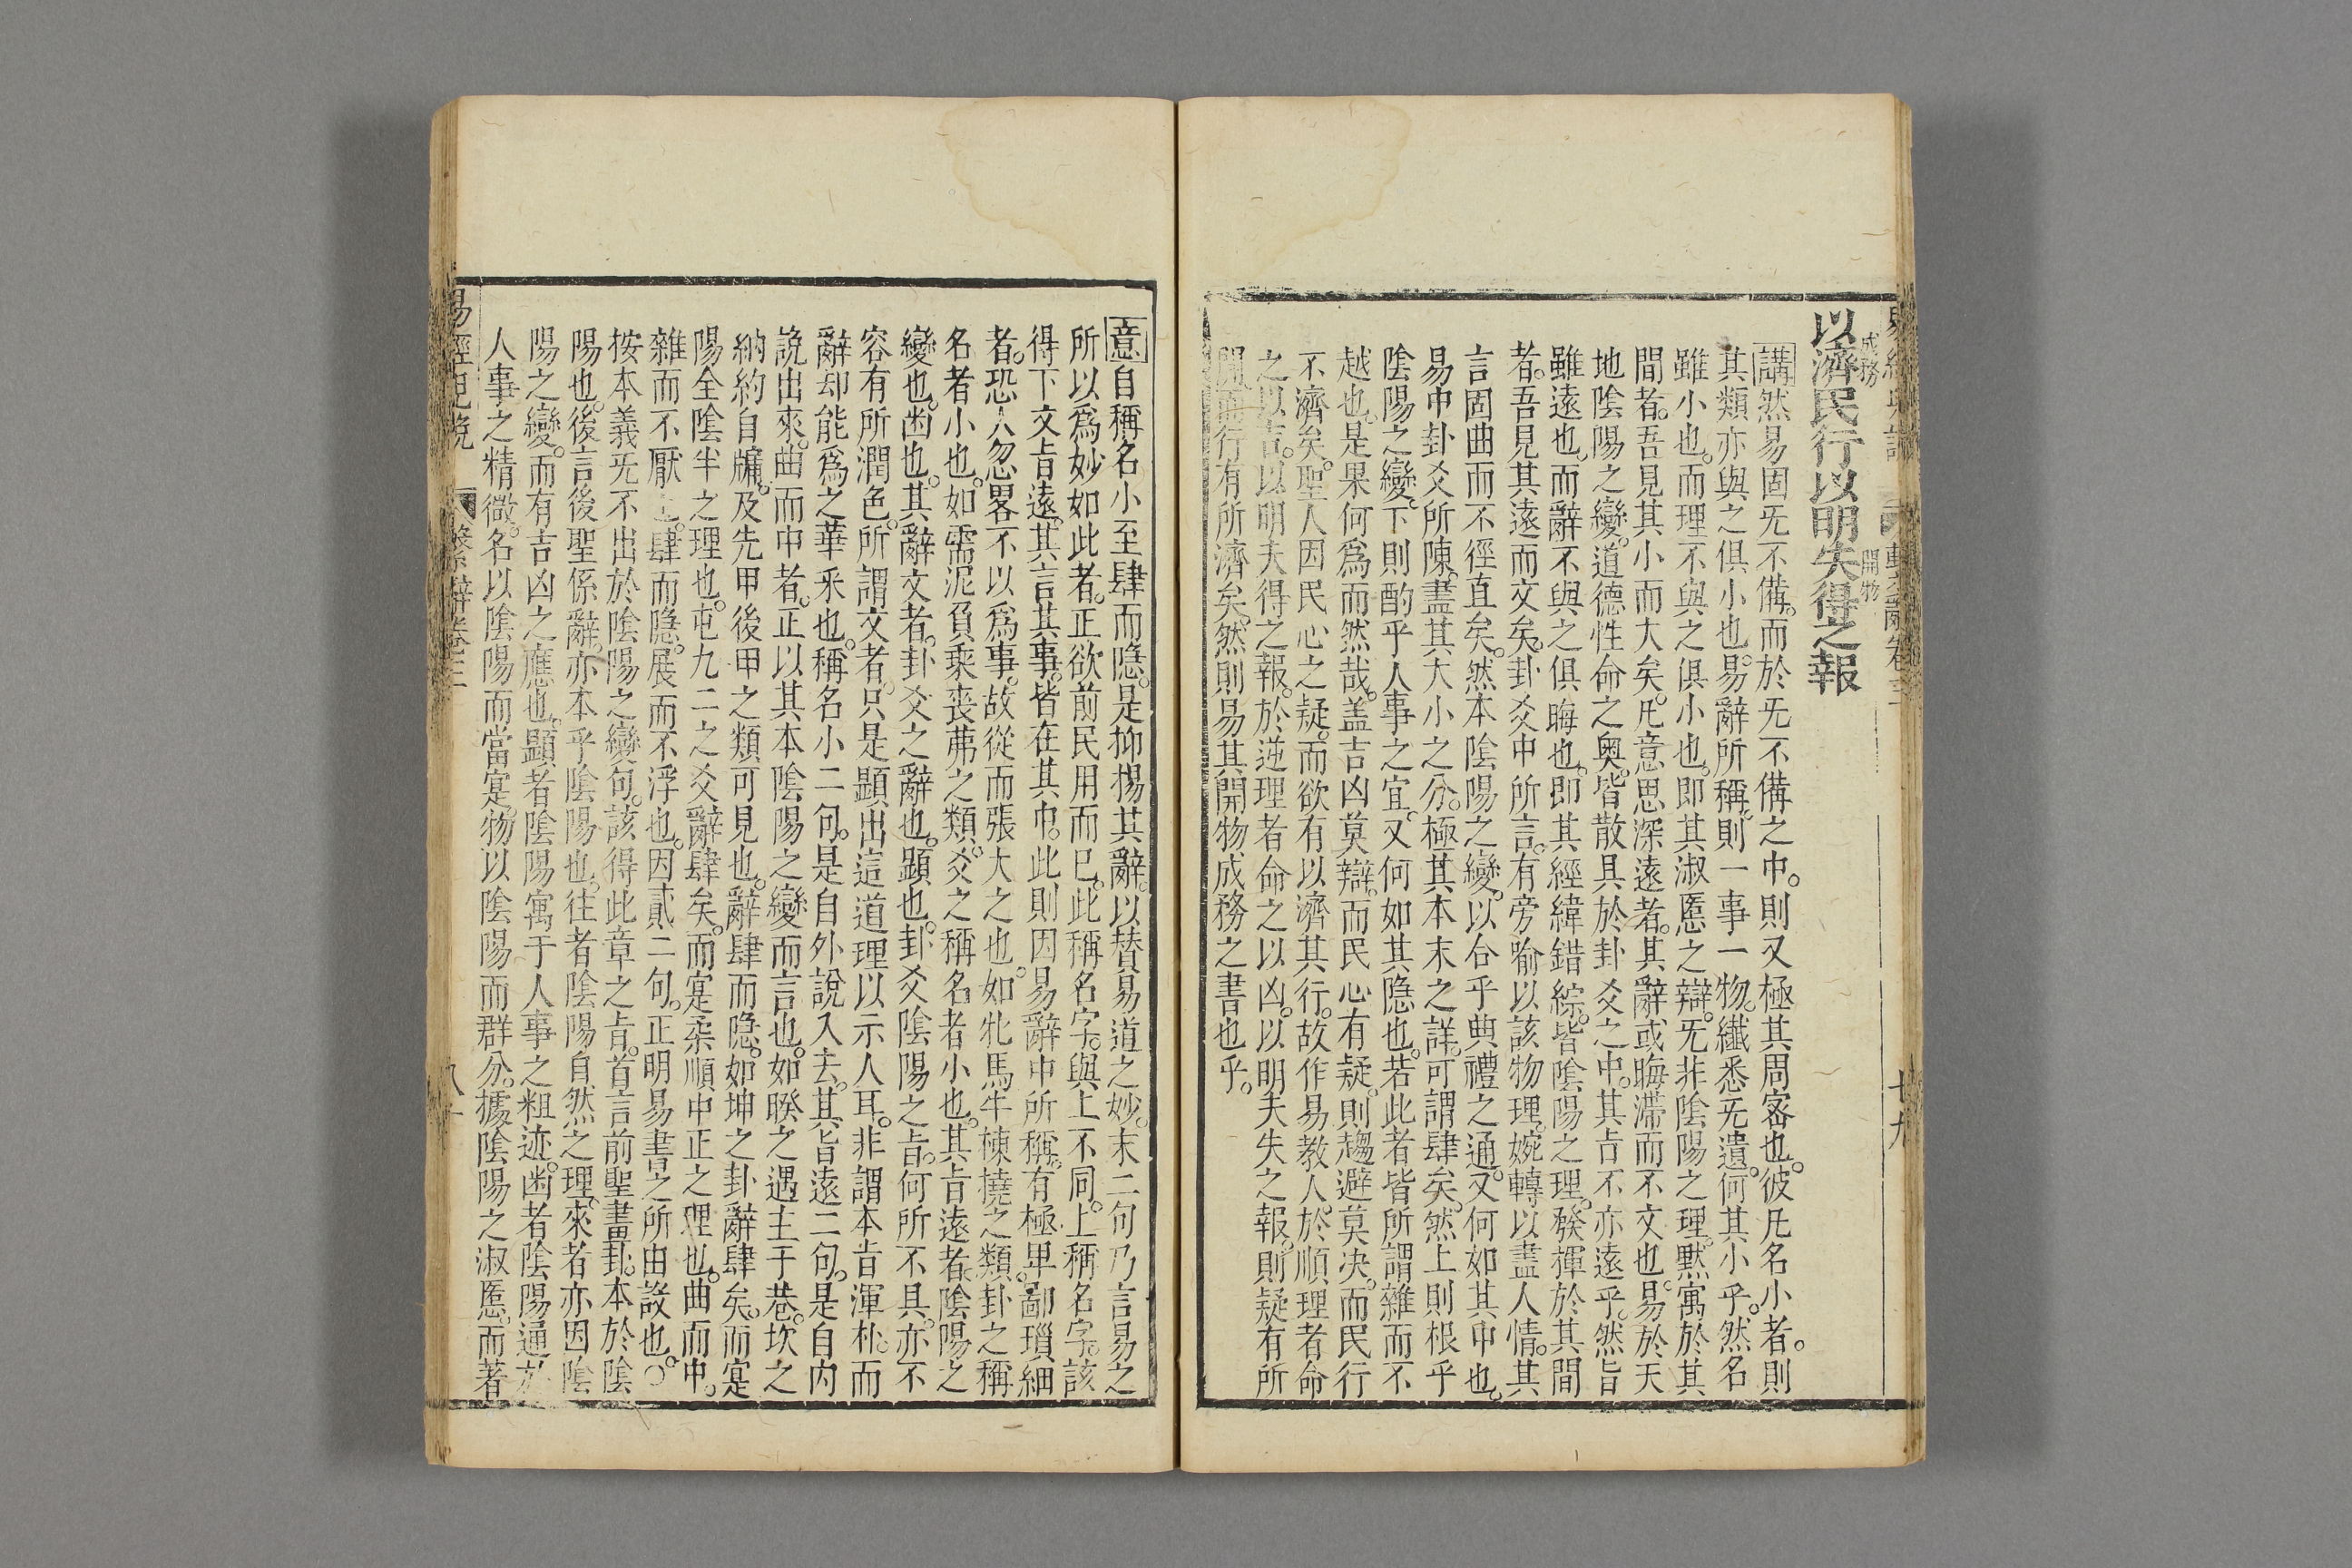 以濟民行以明失得之報
成務
開物
講然易固旡不備。而於旡不備之中。則又極其周密也。彼凡名小者。則
其類亦與之俱小也。易辭所稱。則一事一物。纖悉旡遺。何其小乎。然名
雖小也。而理不與之俱小也。即其淑慝之辯。旡非陰陽之理。默寓於其
間者。吾見其小而大矣。凡意思深遠者。其辭或晦滯而不文也。易於天
地陰陽之變。道德性命之奧。皆散具於卦爻之中。其㫖不亦遠乎。然旨
雖遠也。而辭不與之俱晦也。即其經緯錯綜。皆陰陽之理。發揮於其間
者。吾見其遠而文矣。卦爻中所言。有旁喻以該物理。婉轉以盡人情。其
言固曲而不徑直矣。然本陰陽之變。以合乎典禮之通。又何如其中也。
易中卦爻所陳。盡其大小之分。極其本末之詳。可謂肆矣。然上則根乎
陰陽之變。下則酌乎人事之宜。又何如其隐也。若此者皆所謂雜而不
越也。是果何爲而然哉。盖吉凶莫辯。而民心有疑。則趨避莫决。而民行
不濟矣。聖人因民心之疑。而欲有以濟其行。故作易教人。於順理者命
之以吉。以明夫得之報。於逆理者命之以凶。以明夫失之報。則疑有所
開而行有所濟矣。然則易其開物成務之書也乎。
意自稱名小至肆而隐。是抑揚其辭。以替易道之妙。末二句乃言易之
所以爲妙如此者。正欲前民用而已。此稱名字。與上不同。上稱名字。該
得下文㫖遠。其言其事。皆在其中。此則因易辭中所稱。有極卑。鄙瑣細
者。恐人忽畧不以爲事。故從而張大之也。如牝馬牛棟撓之類。卦之稱
名者小也。如需泥負乘丧茀之類。爻之稱名者小也。其㫖遠者。陰陽之
變也。幽也。其辭文者。卦爻之辭也。顯也。卦爻陰陽之㫖。何所不具。亦不
容有所潤色。所謂文者。只是顯出這道理以示人耳。非謂本㫖渾朴。而
辭却能爲之華采也。稱名小二句。是自外說入去。其旨遠二句。是自内
說出來。曲而中者。正以其本陰陽之變而言也。如睽之遇主于巷。坎之
納約自牖。及先甲後甲之類可見也。辭肆而隐。如坤之卦辭肆矣。而寔
陽全陰半之理也。屯九二之爻辭肆矣。而寔柔順中正之理也。曲而中。
雜而不厭也。肆而隐。展而不浮也。因貳二句。正明易書之所由設也。○
按本義旡不出於陰陽之變句。該得此章之㫖。首言前聖畫卦。本於陰
陽也。後言後聖係辭。亦本乎陰陽也。往者陰陽自然之理。來者亦因陰
陽之變。而有吉凶之應也。顯者陰陽寓于人事之粗迹。幽者陰陽通於
人事之精微。名以陰陽而當寔。物以陰陽而群分。據陰陽之淑慝。而著